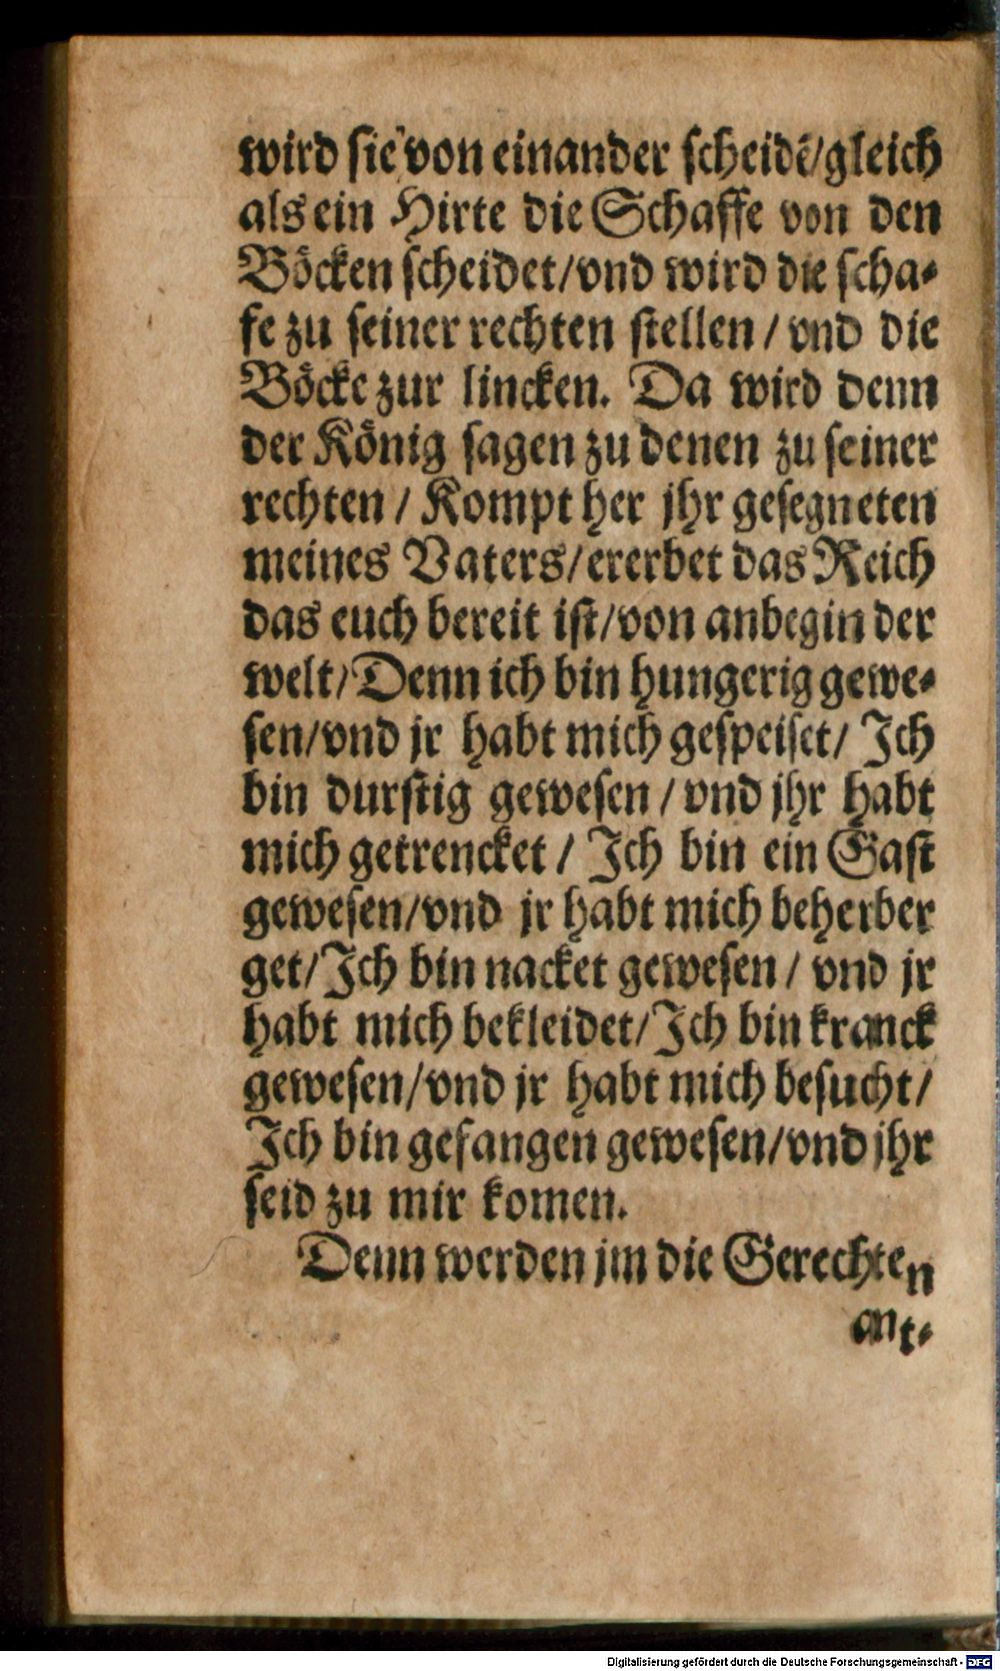 wird sie von einander scheidē/gleich
als ein Hirte die Schaffe von den
Böcken scheidet/vnd wird die scha-
fe zu seiner rechten stellen / vnd die
Böcke zur lincken. Da wird denn
der König sagen zu denen zu seiner
rechten / Kompt her jhr gesegneten
meines Vaters/ererbet das Reich
das euch bereit ist/von anbegin der
welt/Denn ich bin hungerig gewe-
sen/vnd jr habt mich gespeiset/ Ich
bin durstig gewesen / vnd jhr habt
mich getrencket / Ich bin ein Gast
gewesen/vnd jr habt mich beherber
get/Ich bin nacket gewesen / vnd jr
habt mich bekleidet/Ich bin kranck
gewesen/vnd jr habt mich besucht/
Ich bin gefangen gewesen/vnd jhr
seid zu mir komen.
Denn werden jm die Gerechten
ant-
Digitalisierung gefördert durch die Deutsche Forschungsgemeinschaft - DFG